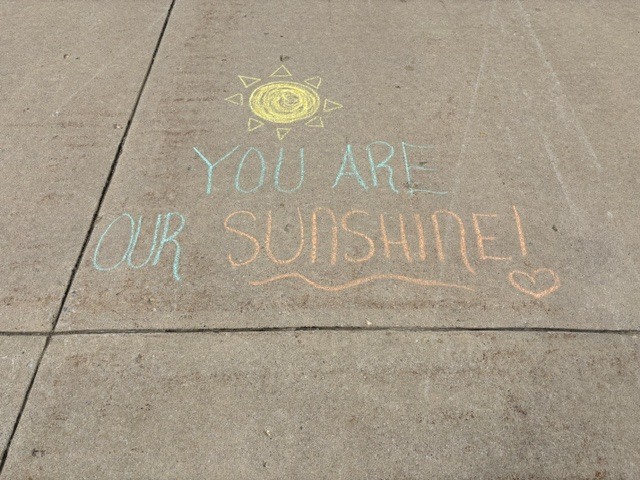 YOU ARE
OUR SUNSHINE!